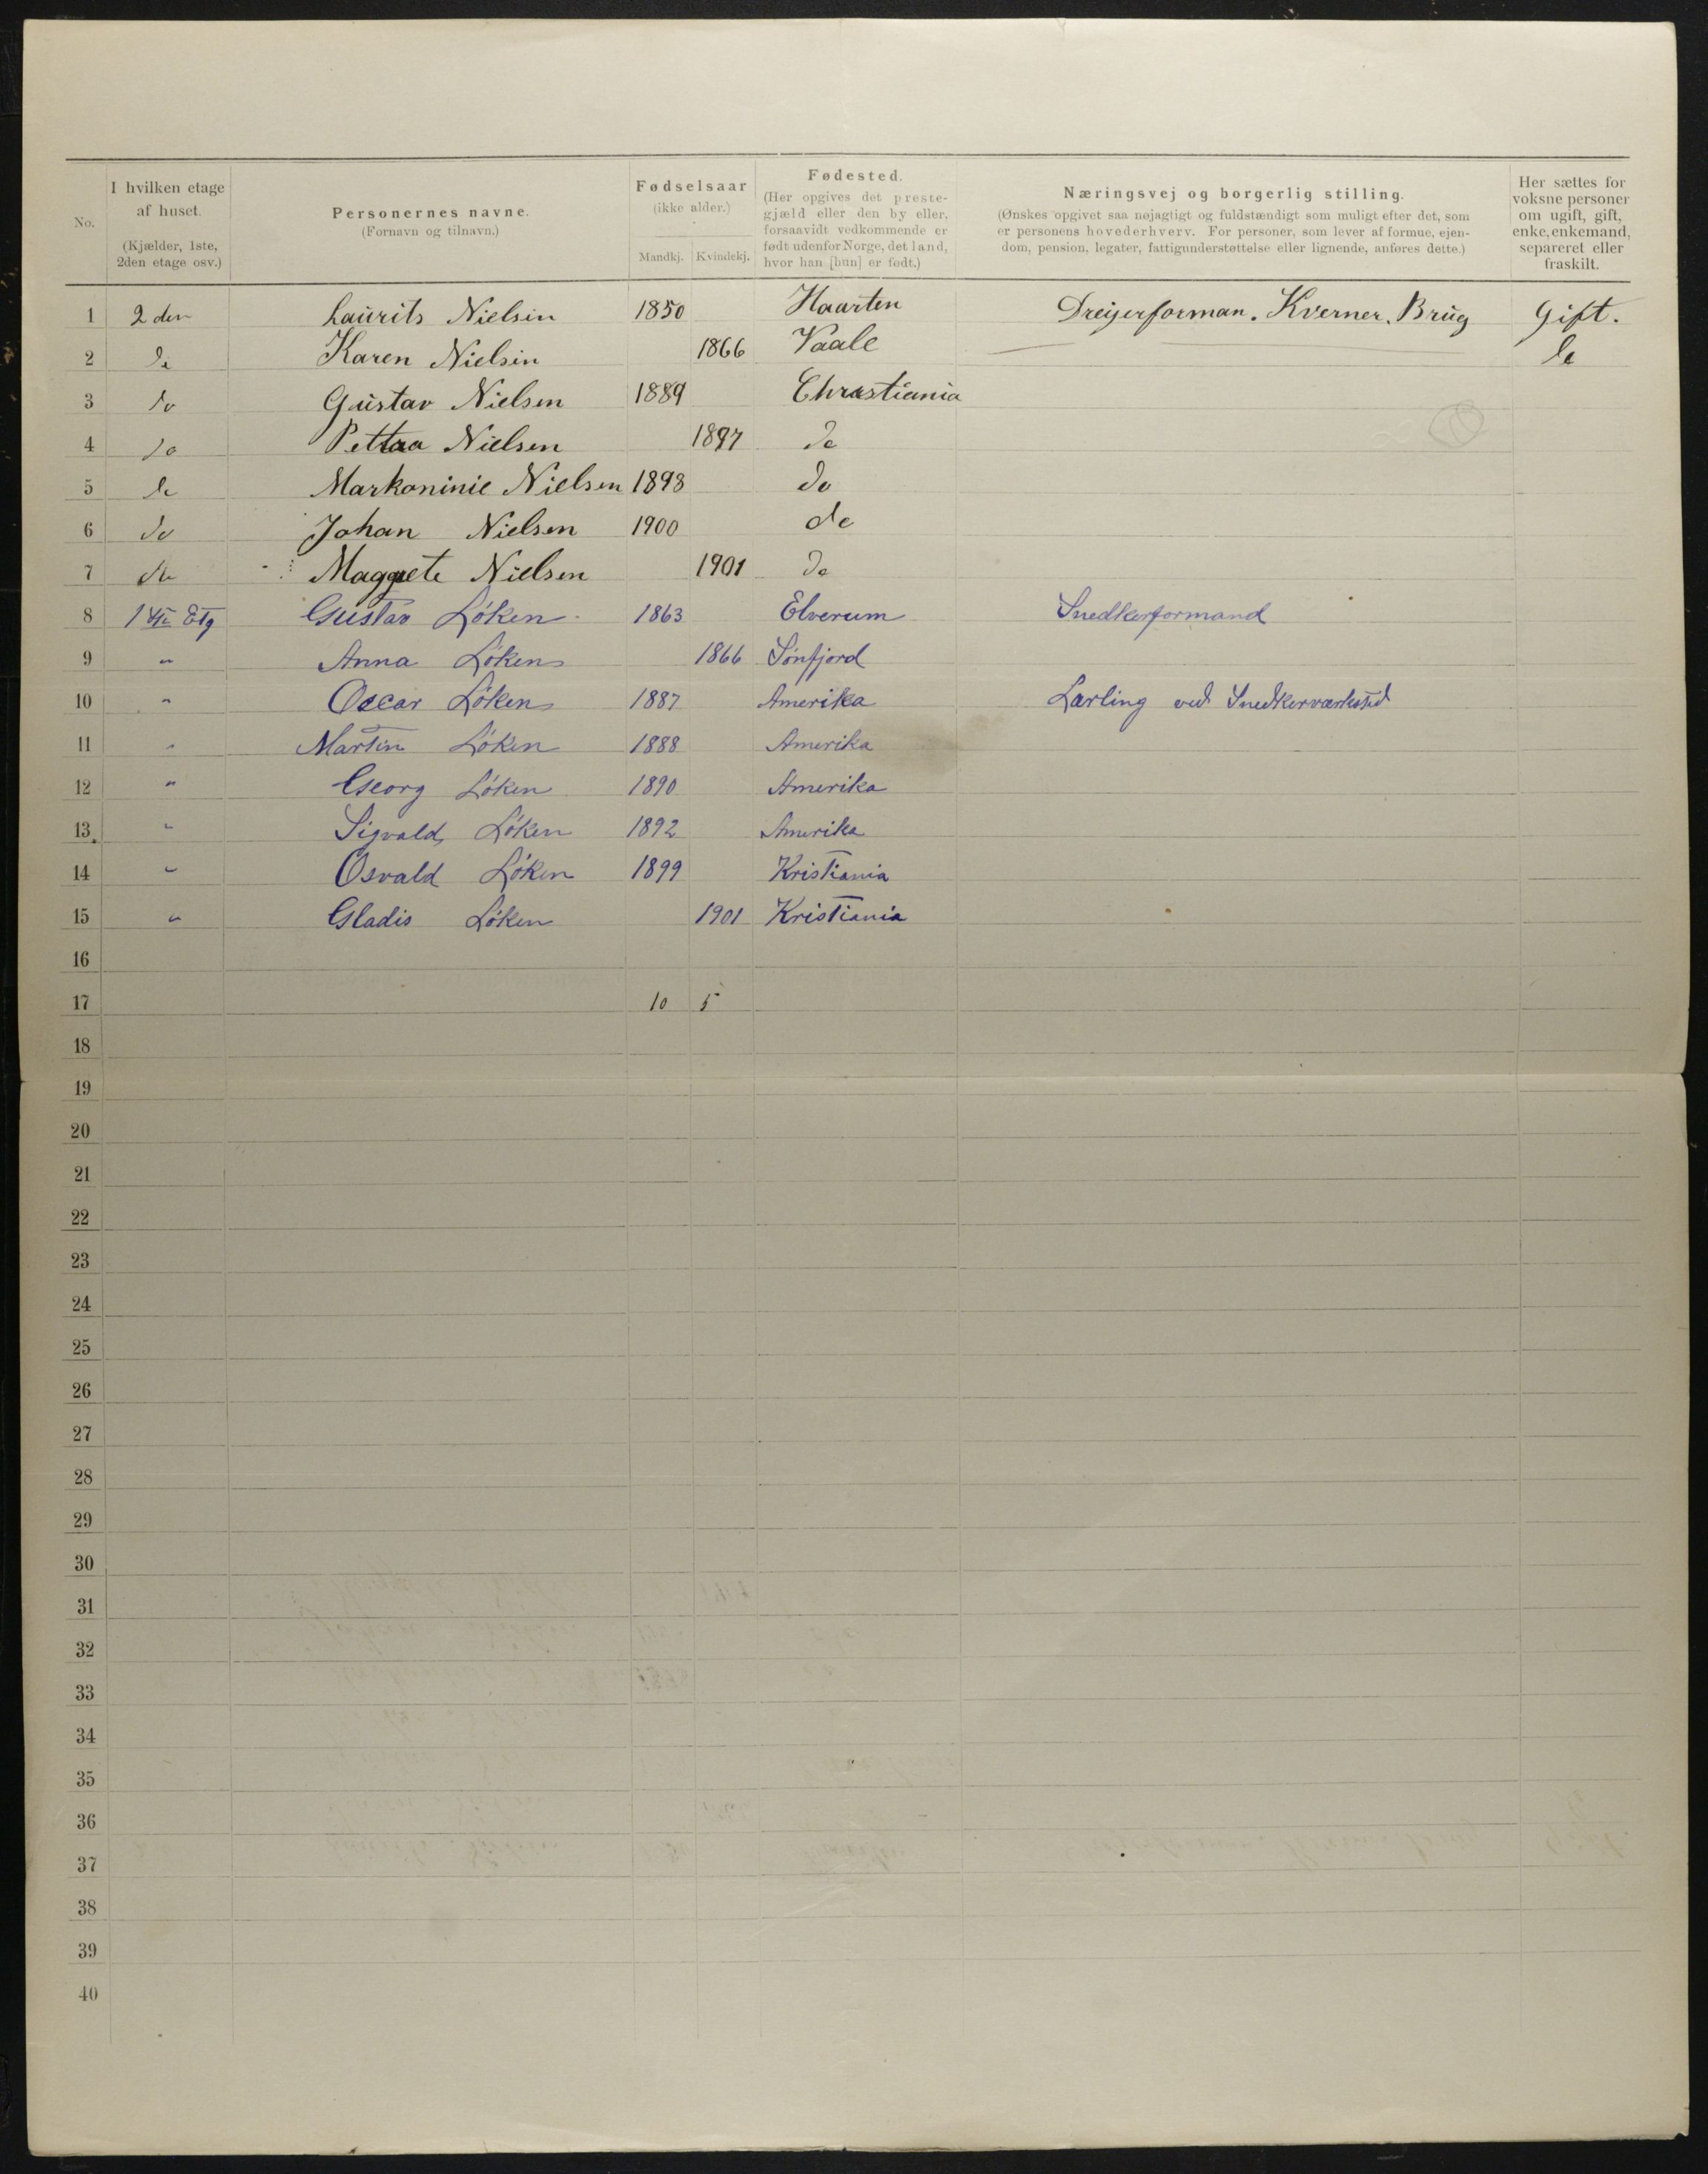 No.
I hvilken etage af huset. (Kjælder, 1ste, 2den etage osv.)
Personernes navne. (Fornavn og tilnavn.)
Fødselsaar (ikke alder.)
Mandkj. Kvindekj.
Fødested. (Her opgives det prestegjæld eller den by eller, forsaavidt vedkommende er født udenfor Norge, det land, hvor han [hun] er født.)
Næringsvej og borgerlig stilling.
(Ønskes opgivet saa nøjagtigt og fuldstændigt som muligt efter det, som er personens hovederhverv. For personer, som lever af formue, ejendom, pension, legater, fattigunderstøttelse eller lignende, anføres dette.)
Her sættes for voksne personer om ugift, gift, enke, enkemand, separeret eller fraskilt.
1 2den Laurits Nielsin 1850 Haarten Dreijerforman. Kverner. Brug Gift.
2 do Karen Nielsin 1866 Vaale do
3 do Gustav Nielsen 1889 Christiania
4 do Pettra Nielsen 1897 do
5 do Markoninie Nielsen 1898 do
6 do Johan Nielsen 1900 do
7 do Maggrete Nielsen 1901 do
8 1ste Etg Gustav Løken 1863 Elverum Snedkerformand
9 " Anna Løken 1866 Sønfjord
10 " Oscar Løken 1887 Amerika Lærling ved Snedkerværksted
11 " Martin Løken 1888 Amerika
12 " Georg Løken 1890 Amerika
13 " Sigvald Løken 1892 Amerika
14 " Osvald Løken 1899 Kristiania
15 " Gladis Løken 1901 Kristiania
16
17 10 5
18
19
20
21
22
23
24
25
26
27
28
29
30
31
32
33
34
35
36
37
38
39
40